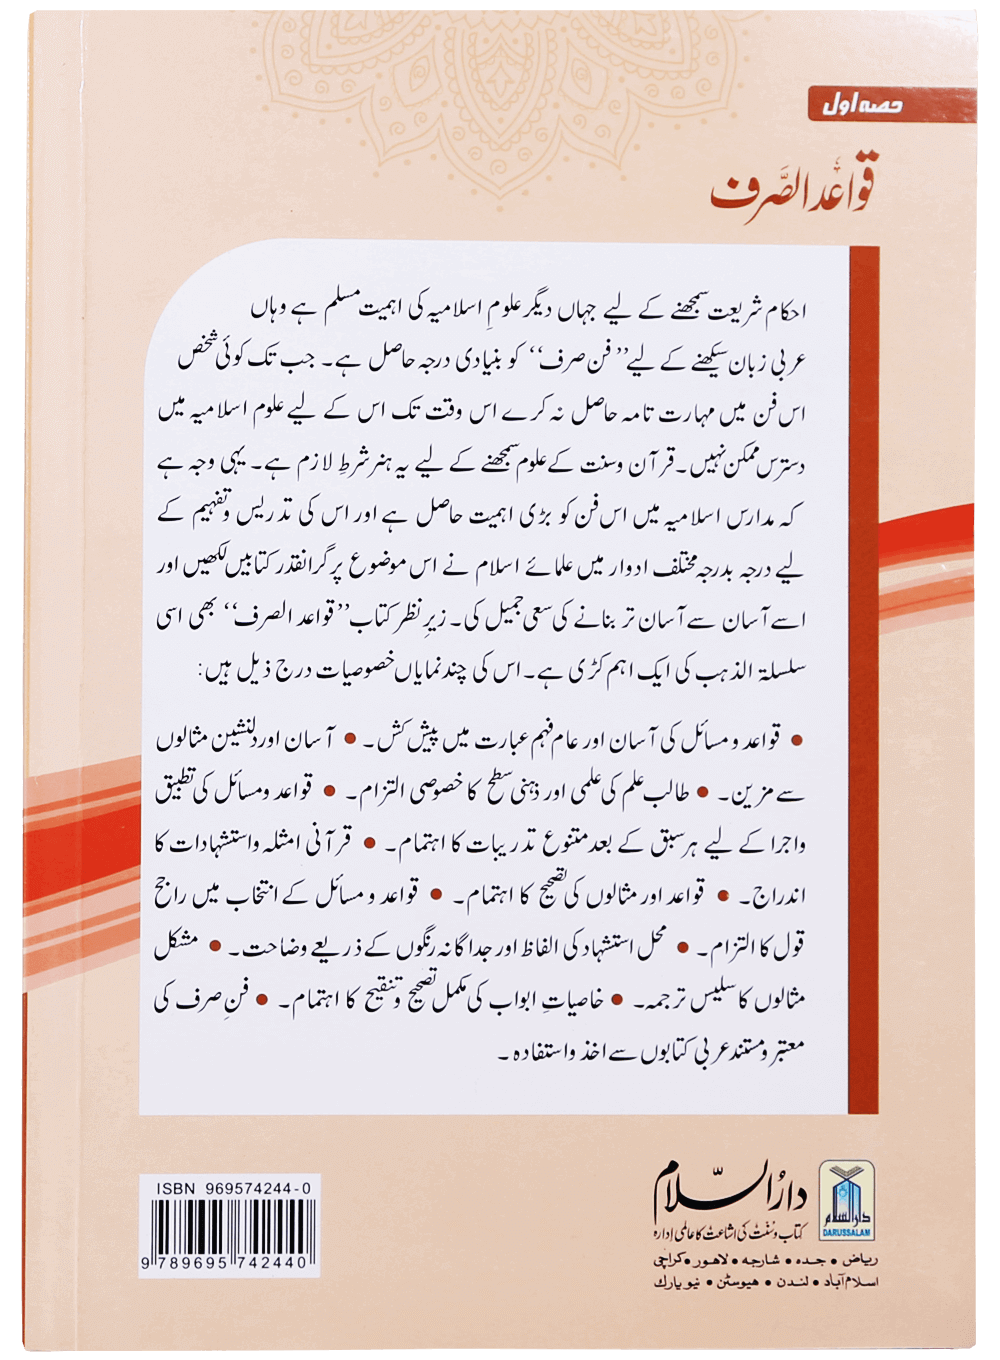 حصہ اول
قواعد الصَّرف
احکام شریعت سمجھنے کے لیے جہاں دیگر علومِ اسلامیہ کی اہمیت مسلم ہے وہاں
عربی زبان سیکھنے کے لیے ’’فن صرف‘‘ کو بنیادی درجہ حاصل ہے۔ جب تک کوئی شخص
اس فن میں مہارت تامہ حاصل نہ کرے اس وقت تک اس کے لیے علوم اسلامیہ میں
دسترس ممکن نہیں۔ قرآن وسنت کے علوم سمجھنے کے لیے یہ ہنر شرطِ لازم ہے۔ یہی وجہ ہے
کہ مدارس اسلامیہ میں اس فن کو بڑی اہمیت حاصل ہے اور اس کی تدریس وتفہیم کے
لیے درجہ بدرجہ مختلف ادوار میں علمائے اسلام نے اس موضوع پر گرانقدر کتابیں لکھیں اور
اسے آسان سے آسان تر بنانے کی سعی جمیل کی۔ زیرِ نظر کتاب ’’قواعد الصرف‘‘ بھی اسی
سلسلۃ الذہب کی ایک اہم کڑی ہے۔ اس کی چند نمایاں خصوصیات درج ذیل ہیں:
● قواعد و مسائل کی آسان اور عام فہم عبارت میں پیش کش۔ ● آسان اور دلنشین مثالوں
سے مزین۔ ● طالب علم کی علمی اور ذہنی سطح کا خصوصی التزام۔ ● قواعد ومسائل کی تطبیق
واجرا کے لیے ہر سبق کے بعد متنوع تدریبات کا اہتمام۔ ● قرآنی امثلہ واستشہادات کا
اندراج۔ ● قواعد اور مثالوں کی تصحیح کا اہتمام۔ ● قواعد و مسائل کے انتخاب میں راجح
قول کا التزام۔ ● محل استشہاد کی الفاظ اور جداگانہ رنگوں کے ذریعے وضاحت۔ ● مشکل
مثالوں کا سلیس ترجمہ۔ ● خاصیاتِ ابواب کی مکمل تصحیح وتنقیح کا اہتمام۔ ● فنِ صرف کی
معتبر ومستند عربی کتابوں سے اخذ واستفادہ۔
دارُالسّلام
کتاب وسنت کی اشاعت کا عالمی ادارہ
ریاض • جدہ • شارجہ • لاہور • کراچی
اسلام آباد • لندن • ہیوسٹن • نیویارک
دارالسلام
DARUSSALAM
ISBN 969574244-0
9 789695 742440